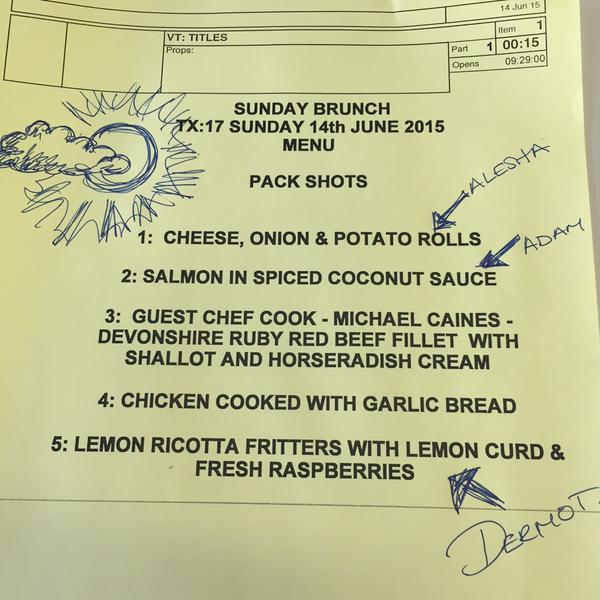 14 Jun 15
Item 1
VT: TITLES
Part 1 00:15
Props:
Opens 09:29:00
SUNDAY BRUNCH
TX:17 SUNDAY 14th JUNE 2015
MENU
PACK SHOTS
ALESHA
1: CHEESE, ONION & POTATO ROLLS
ADAM
2: SALMON IN SPICED COCONUT SAUCE
3: GUEST CHEF COOK - MICHAEL CAINES -
DEVONSHIRE RUBY RED BEEF FILLET WITH
SHALLOT AND HORSERADISH CREAM
4: CHICKEN COOKED WITH GARLIC BREAD
5: LEMON RICOTTA FRITTERS WITH LEMON CURD &
FRESH RASPBERRIES
DERMOT